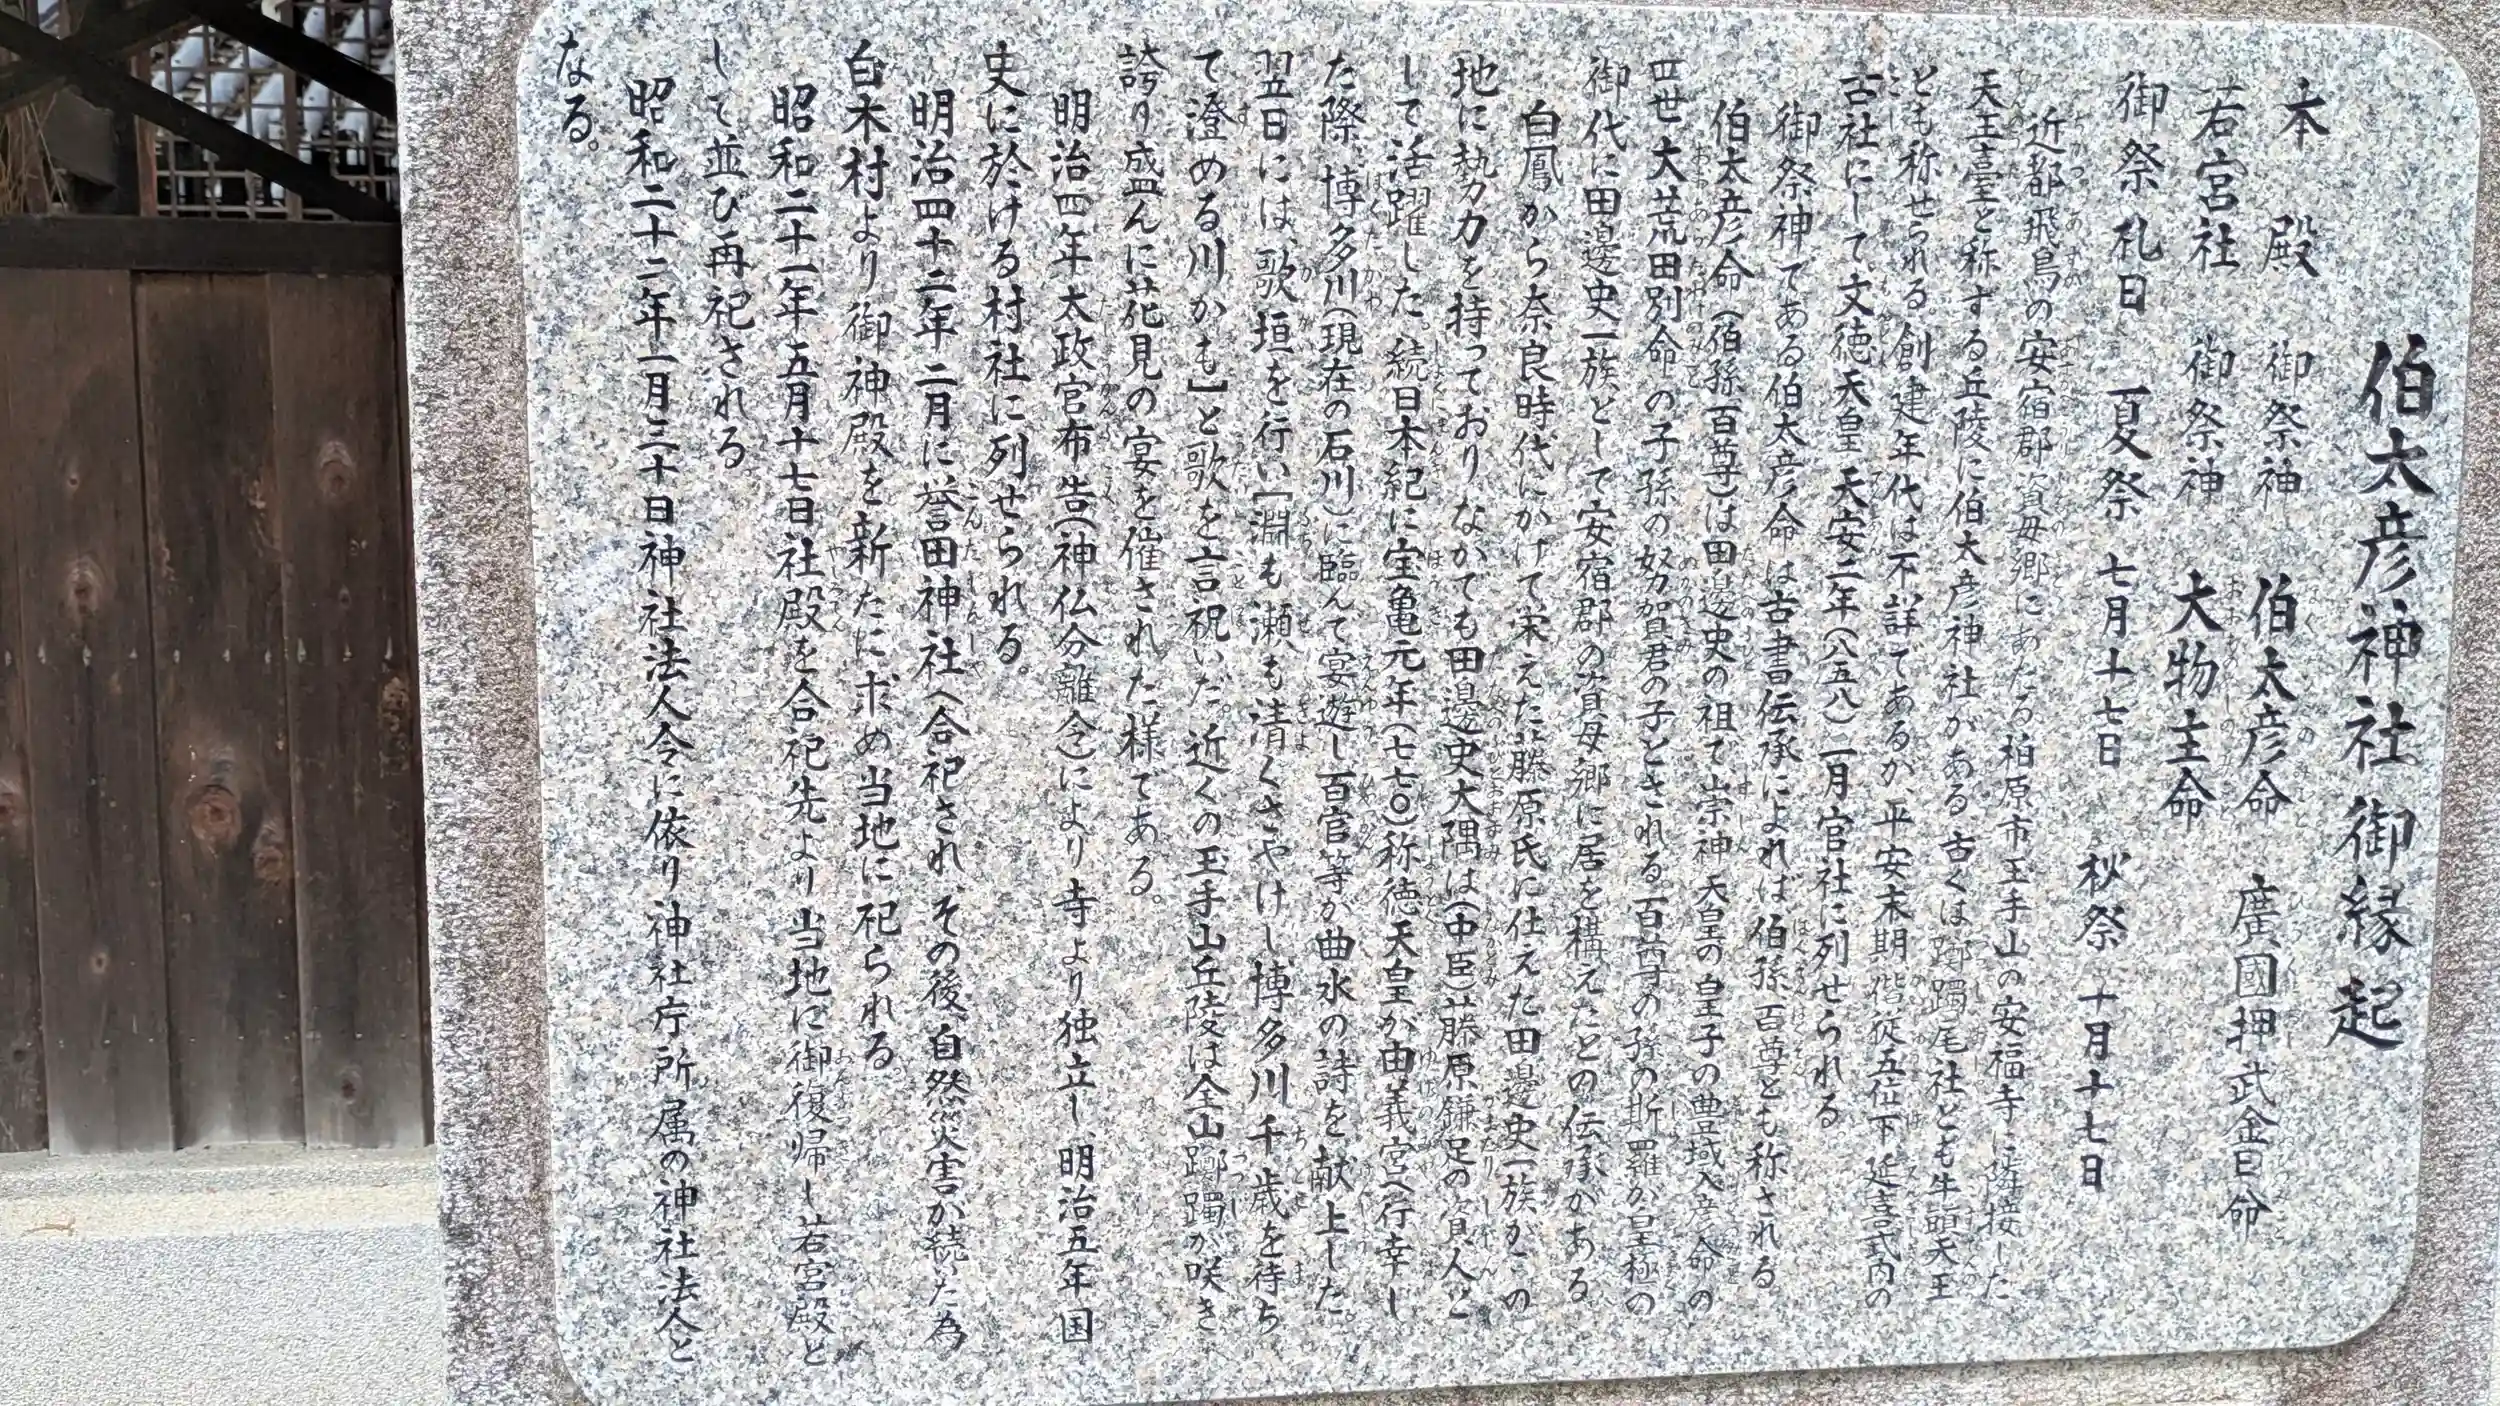 伯太彦神社御縁起
本殿 御祭神 伯太彦命 廣國押武金日命
若宮社 御祭神 大物主命
御祭礼日 夏祭 七月十七日 秋祭 十月十七日
近都飛鳥の安宿郡資母郷にあたる柏原市玉手山の安福寺に隣接した
天王臺と称する丘陵に伯太彦神社がある。古くは躑躅尾社とも牛頭天王
とも称せられる。創建年代は不詳であるが、平安末期 階従五位下 延喜式内の
古社にして、文徳天皇 天安二年(八五八)一月官社に列せられる。
御祭神である伯太彦命は古書伝承によれば伯孫 百尊とも称される
伯太彦命(伯孫 百尊)は田邊史の祖で、崇神天皇の皇子の豊城入彦命の
四世大荒田別命の子孫の努賀君の子とされる。百尊の孫の斯羅が皇極の
御代に田邊史一族として安宿郡の資母郷に居を構えたとの伝承がある
白鳳から奈良時代にかけて栄えた藤原氏に仕えた田邊史一族がこの
地に勢力を持っており、なかでも田邊史大隅は(中臣)藤原鎌足の資人と
して活躍した。続日本紀に宝亀元年(七七〇)称徳天皇が由義宮へ行幸し
た際、博多川(現在の石川)に臨んで宴遊し百官等が曲水の詩を献上した。
翌日には、歌垣を行い[淵も瀬も清くさやけし博多川千歳を待ち
て澄める川かも]と歌を言祝いだ。近くの玉手山丘陵は全山躑躅が咲き
誇り盛んに花見の宴を催された様である。
明治四年太政官布告(神仏分離令)により寺より独立し、明治五年国
史に於ける村社に列せられる。
明治四十二年二月に誉田神社へ合祀され、その後、自然災害が続いた為
白木村より御神殿を新たに求め当地に祀られる
昭和二十一年五月十七日社殿を合祀先より当地に御復帰し若宮殿と
して並び再祀される
昭和二十二年一月三十日神社法人令に依り神社庁所属の神社法人と
なる。